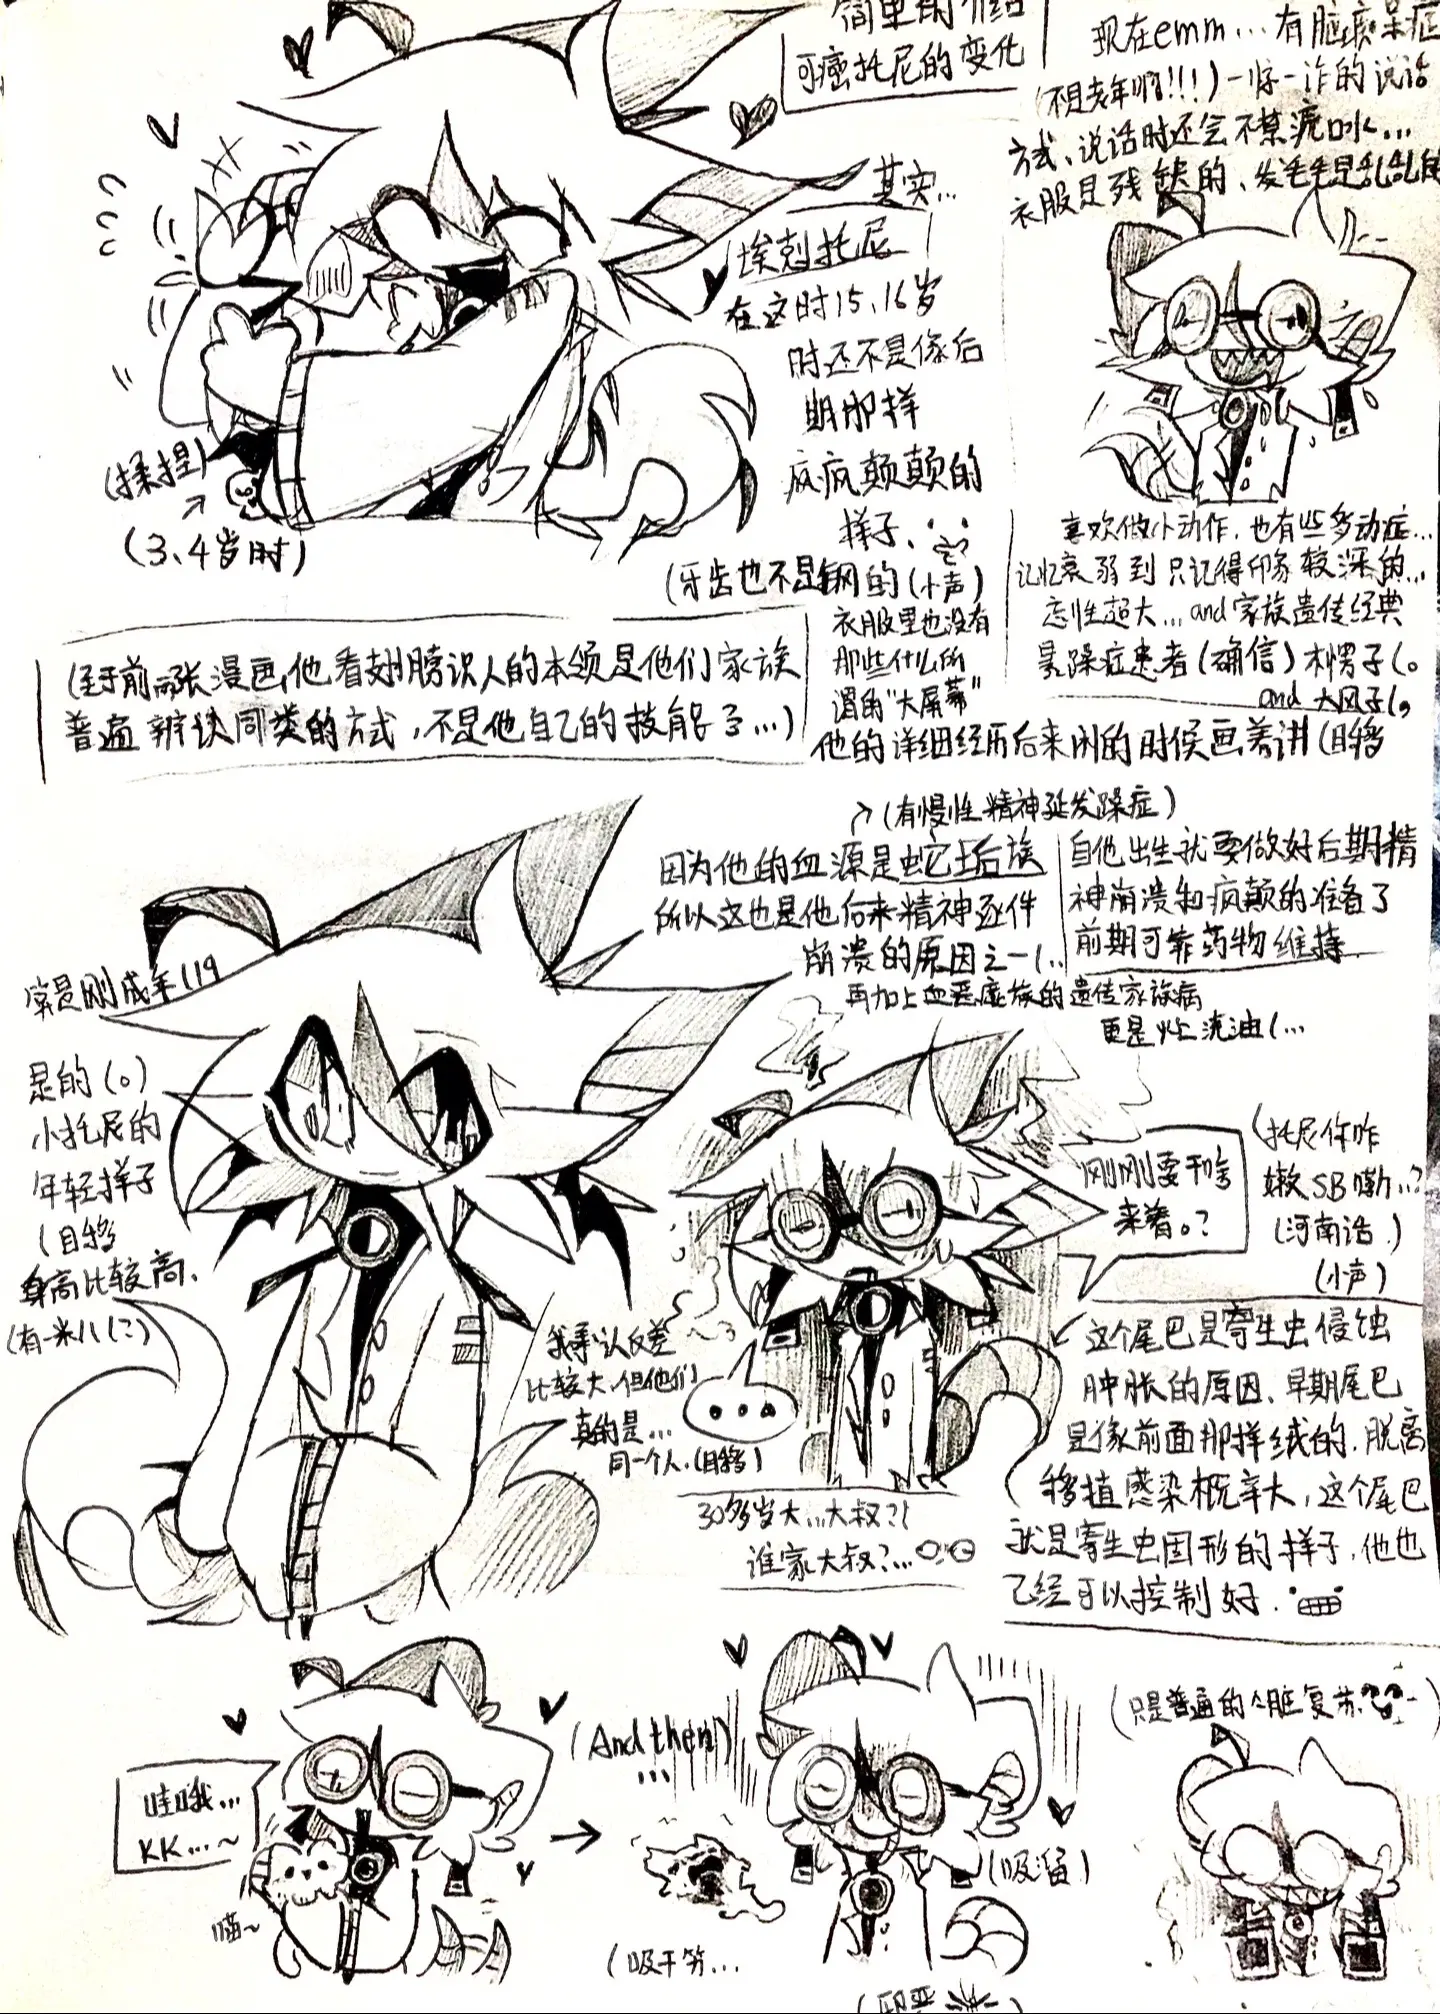 简单的介绍
可癌托尼的变化
现在emm...有脑痰呆症
(不是老年啊!!!)一惊一诈的说话
方式、说话时还会不禁流口水...
衣服是残缺的、发毛毛是乱乱的
其实...
埃剋托尼
在这时15、16岁
时还不是像后
期那样
疯疯颠颠的
样子、
(牙齿也不是钢的(小声)
衣服里也没有
那些什么所
谓的"大屏幕"
他的详细经历后来闲的时候画着讲(目移
(揉捏)
(3、4岁时)
喜欢做小动作,也有些多动症...
记忆衰弱到只记得印象较深的...
忘性超大...and家族遗传经典
暴躁症患者(确信)木愣子(。
and 大风子(。
(至于前两张漫画,他看翅膀识人的本领是他们家族
普遍辨识同类的方式,不是他自己的技能了...)
(有慢性精神延发躁症)
因为他的血源是蛇垢族
所以这也是他后来精神逐件
崩溃的原因之一(...
再加上血恶魔族的遗传家族病
更是火上浇油(...
自他出生就要做好后期精
神崩溃和疯颠的准备了
前期可靠药物维持
常是刚成年(19
是的(。)
小托尼的
年轻样子
(目移
身高比较高、
(有一米八(?)
我承认反差
比较大,但他们
真的是...
同一个人、(目移)
...
刚刚要干啥
来着。?
(托尼你咋
嫩SB嘞..?
(河南话.)
(小声)
30多岁大...大叔?!
谁家大叔?...
这个尾巴是寄生虫侵蚀
肿胀的原因、早期尾巴
是像前面那样绒的.脱离
移植感染概率大,这个尾巴
就是寄生虫固形的样子,他也
已经可以控制好.
哇哦...
KK...~
喵~
(And then)
...
(吸干夯...
(吸溜)
(只是普遍的心脏复苏